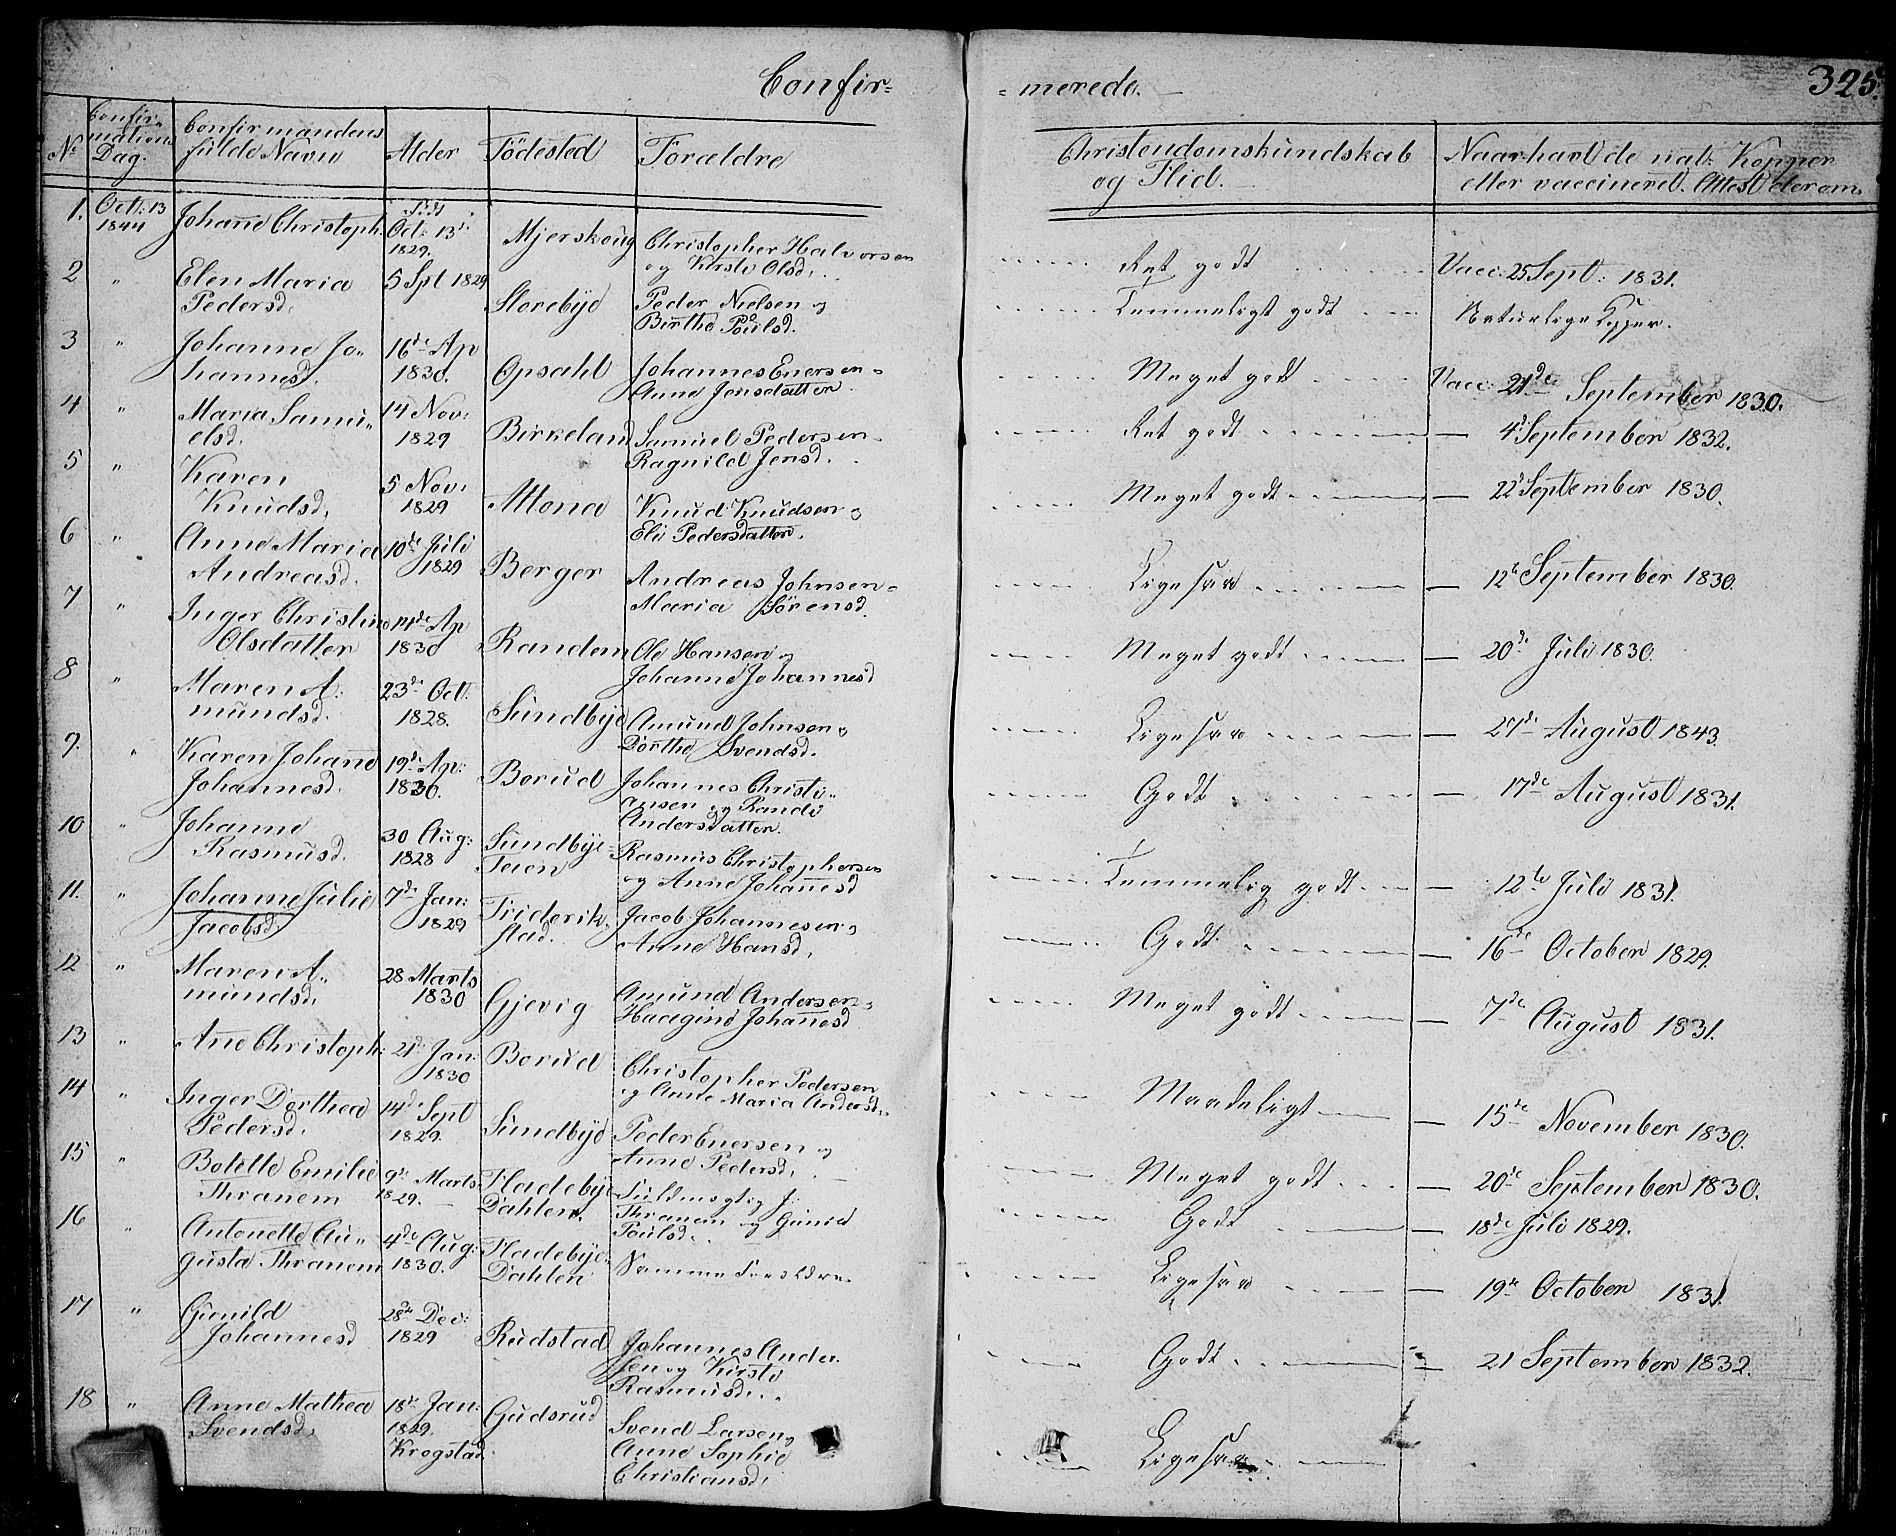 Confir=
=merede.
325.
No
Confir-
mations
Dag.
Confirmandens
fulde Navn
Alder
Födested
Forældre
Christendomskundskab
og Flid.
Naar havt de nat: Kopper
eller vaccineret. Attest derom.
1. Oct: 13 1844 Johane Christoph: Födt Oct: 13de 1829. Mjerskoug Christopher Halvorsen
og Kirsti Olsd. Ret godt Vacc: 25 Sept: 1831.
2 " Elen Maria 5 Spt 1829 Storebye Peder Nielsen og
Pedersd. Birthe Poulsd. Temmeligt godt Naturlige Kopper.
3 " Johanne Jo- 16de Ap Opsahl Johannes Enersen -
hannesd. 1830. Anne Jensdatter Meget godt Vacc: 21de September 1830.
4 " Maria Samu- 14 Nov: Birkeland Samuel Pedersen -
elsd. 1829 Ragnild Jensd. Ret godt — 4de September 1832.
5 " Karen 5 Nov: Altona Knud Knudsen og
Knudsd. 1829 Eli Pedersdatter. Meget godt — 22de September 1830.
6 " Anne Maria 10de Juli Berger Andreas Johnsen -
Andreasd. 1829 Maria Sörensd. Ligesaa — 12te September 1830.
7 " Inger Christine 14de Ap Randem Ole Hansen og
Olsdatter 1830 Johanne Johannesd Meget godt — 20de Juli 1830.
8 " Maren A- 23de Oct. Sundbye Amund Johnsen og
mundsd. 1828. Dorthe Svendsd. Ligesaa — 27de August 1843.
9. " Karen Johane 19de Ap: Borud Johannes Christi-
Johannesd. 1830. ansen og Randi
Andersdatter. Godt — 17de August 1831.
10 " Johanne 30 Aug: Sundbye- Rasmus Christophersen
Rasmusd. 1828 Teien og Anne Johanesd Temmelig godt — 12te Juli 1831.
11. " Johanne Julie 7de Jan: Friderik- Jacob Johannesen og
Jacobsd. 1829 stad. Anne Hansd. Godt — 16de October 1829.
12 " Maren A- 28 Marts Gjevig Amund Andersen og
mundsd. 1830 Haagine Johanesd Meget godt — 7de August 1831.
13 " Ane Christoph: 21de Jan: Borud Christopher Pedersen
1830 og Anne Maria Andersd. Maadeligt — 15de November 1830.
14 " Inger Dorthea 14de Sept Sundbye Peder Enersen og
Pedersd. 1829. Anne Pedersd. Meget godt — 20de September 1830.
15 " Botille Emilie 9de Marts Fladebye Fuldmægtig J.
Thranem 1829. Dahlen. Thranem og Gunild
Poulsd. Godt — 18de Juli 1829.
16 " Antonette Au- 4de Aug: Fladebye-
gusta Thranem 1830. Dahlen Samme Forældre Ligesaa — 19de October 1831.
17 " Gunild 28de Dec: Rudstad Johannes Ander-
Johannesd 1829 sen og Kirsti
Rasmusd. Godt — 21 September 1832.
18 " Anne Mathea 18de Jan: Gudsrud Svend Larsen og
Svendsd. 1829. Anne Sophie
Krogstad. Christiansd. Ligesaa